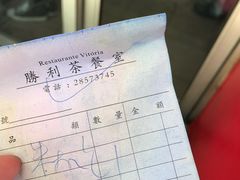 Restaurante Vitória
勝利茶餐室
電話：28573745
號
品 類 數量 金 額